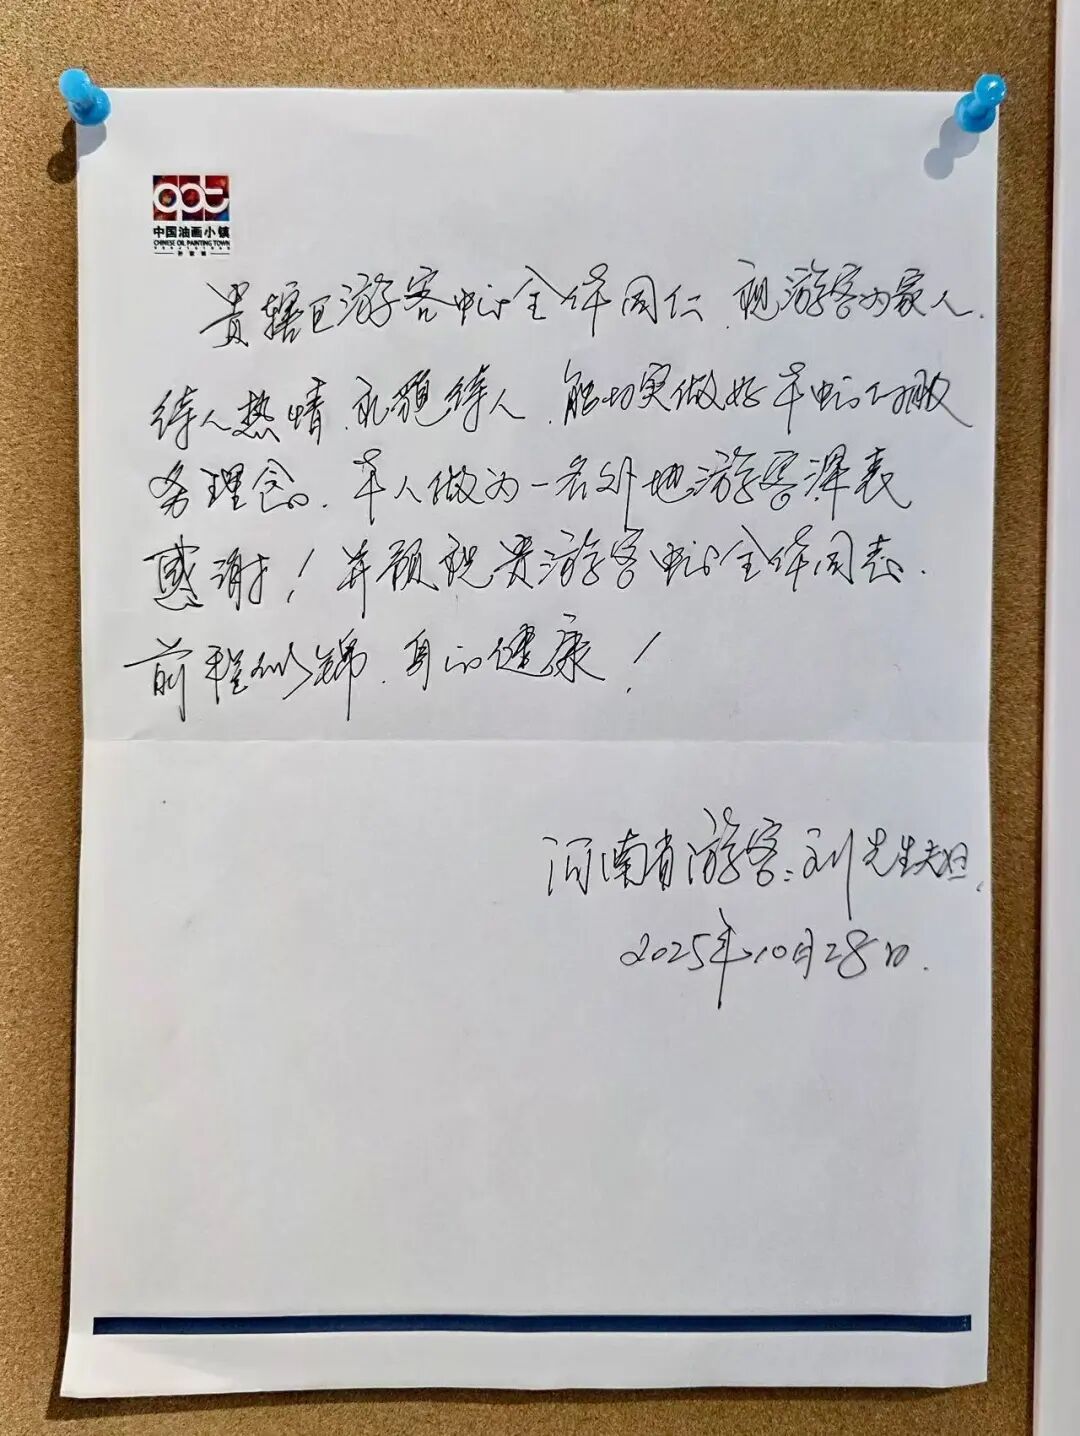 opt
中国油画小镇
CHINESE OIL PAINTING TOWN
贵辖区游客中心全体同仁.视游客为家人.
待人热情.礼貌待人.能切实做好本中心的服
务理念。本人做为一名外地游客深表
感谢!并预祝贵游客中心全体同志.
前程似锦.身心健康!
河南省游客:刘先生夫妇.
2025年10月28日.